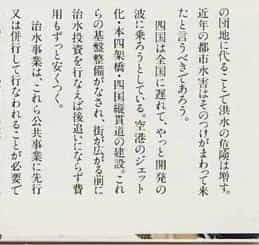 の団地に代ることで洪水の危険は増す。
近年の都市水害はそのつけがまわって来
たと言うべきであろう。
四国は全国に遅れて、やっと開発の
波に乗ろうとしている。空港のジェット
化・本四架橋・四国縦貫道の建設。これ
らの基盤整備がなされ、街が広がる前に
治水投資を行なえば後追いにならず費
用もずっと安くつく。
治水事業は、これら公共事業に先行
又は併行して行なわれることが必要で